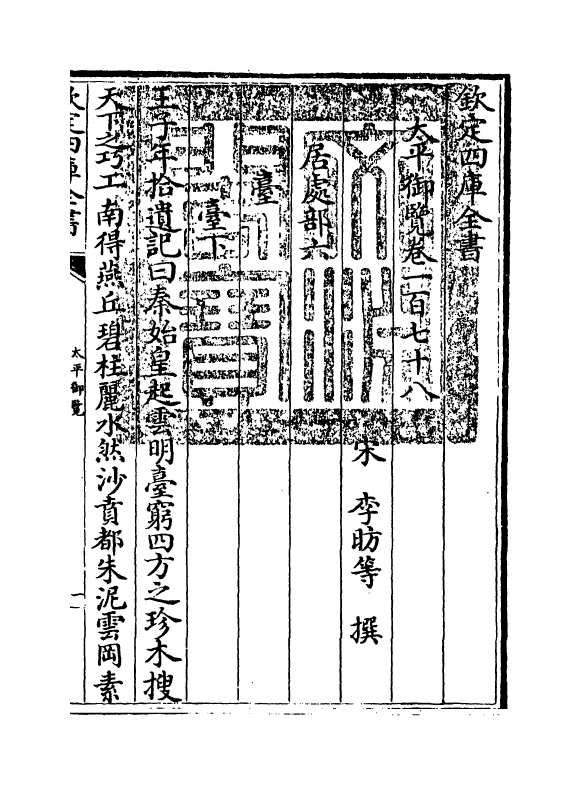 欽定四庫全書
太平御覽卷一百七十八
宋 李昉等 撰
居處部六
臺
臺下
王子年拾遺記曰秦始皇起雲明臺窮四方之珍木搜
天下之巧工南得燕丘碧桂麗水然沙賁都朱泥雲岡素
欽定四庫全書
太平御覽
一
文淵閣寶